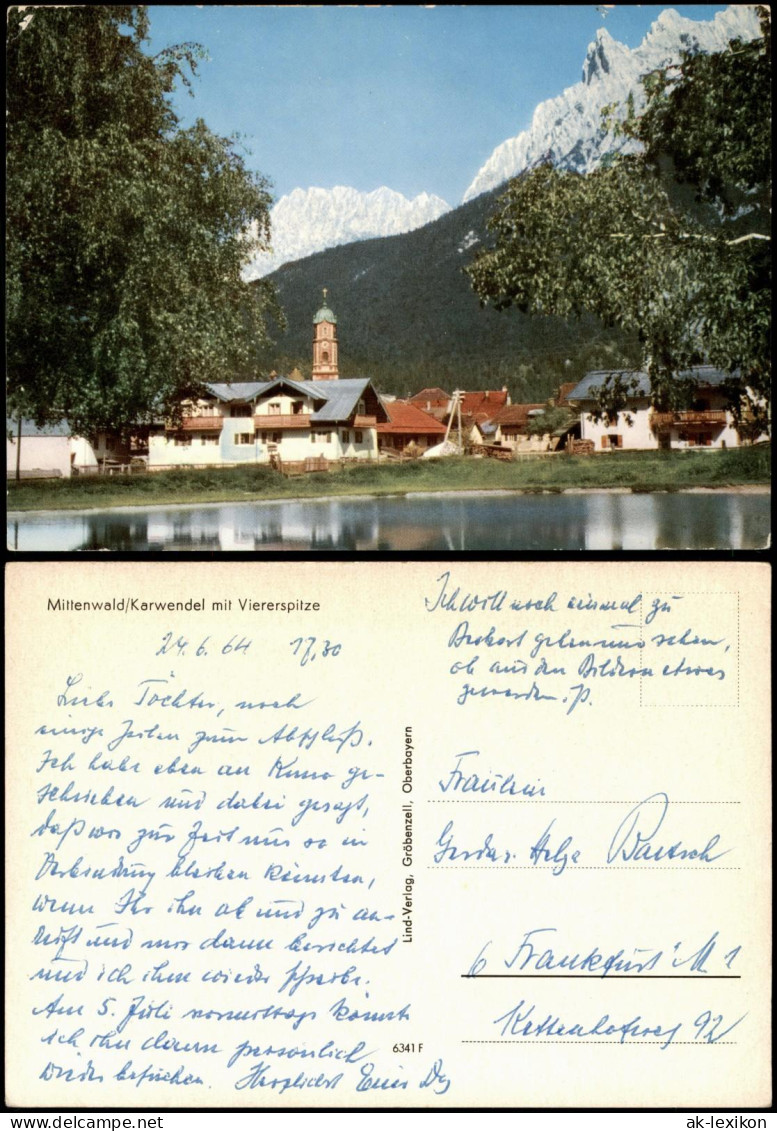 Mittenwald/Karwendel mit Viererspitze
24.6.64 17,30
Liebe Töchter, noch
einige Zeilen zum Abschluß.
Ich habe eben an Kuno ge-
schrieben und dabei gesagt,
daß wir zur Zeit nur so in
Verbindung bleiben könnten,
wenn Ihr ihn ab und zu an-
ruft und mir dann berichtet
und ich ihm wieder schreibe.
Am 5. Juli vormittags könnte
ich ihn dann persönlich
wieder besuchen. Herzlichst Euer
Lind-Verlag, Gröbenzell, Oberbayern
6341 F
Ich will noch einmal zu
gehen und sehen,
ob aus den Bildern etwas
geworden ist.
Fräulein
Gerda u. Helga
6 Frankfurt M 1
Kettenhofweg 92
ak-lexikon